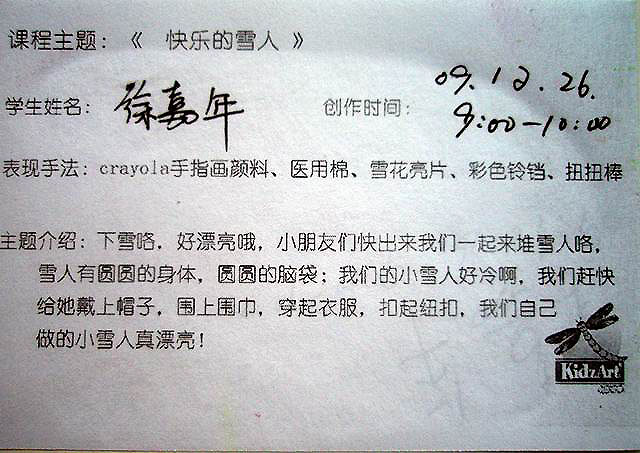 课程主题：《 快乐的雪人 》
学生姓名： 徐嘉年 创作时间： 09.12.26.
9:00-10:00
表现手法：crayola手指画颜料、医用棉、雪花亮片、彩色铃铛、扭扭棒
主题介绍：下雪咯，好漂亮哦，小朋友们快出来我们一起来堆雪人咯，
雪人有圆圆的身体，圆圆的脑袋；我们的小雪人好冷啊，我们赶快
给她戴上帽子，围上围巾，穿起衣服，扣起纽扣，我们自己
做的小雪人真漂亮！
KidzArt